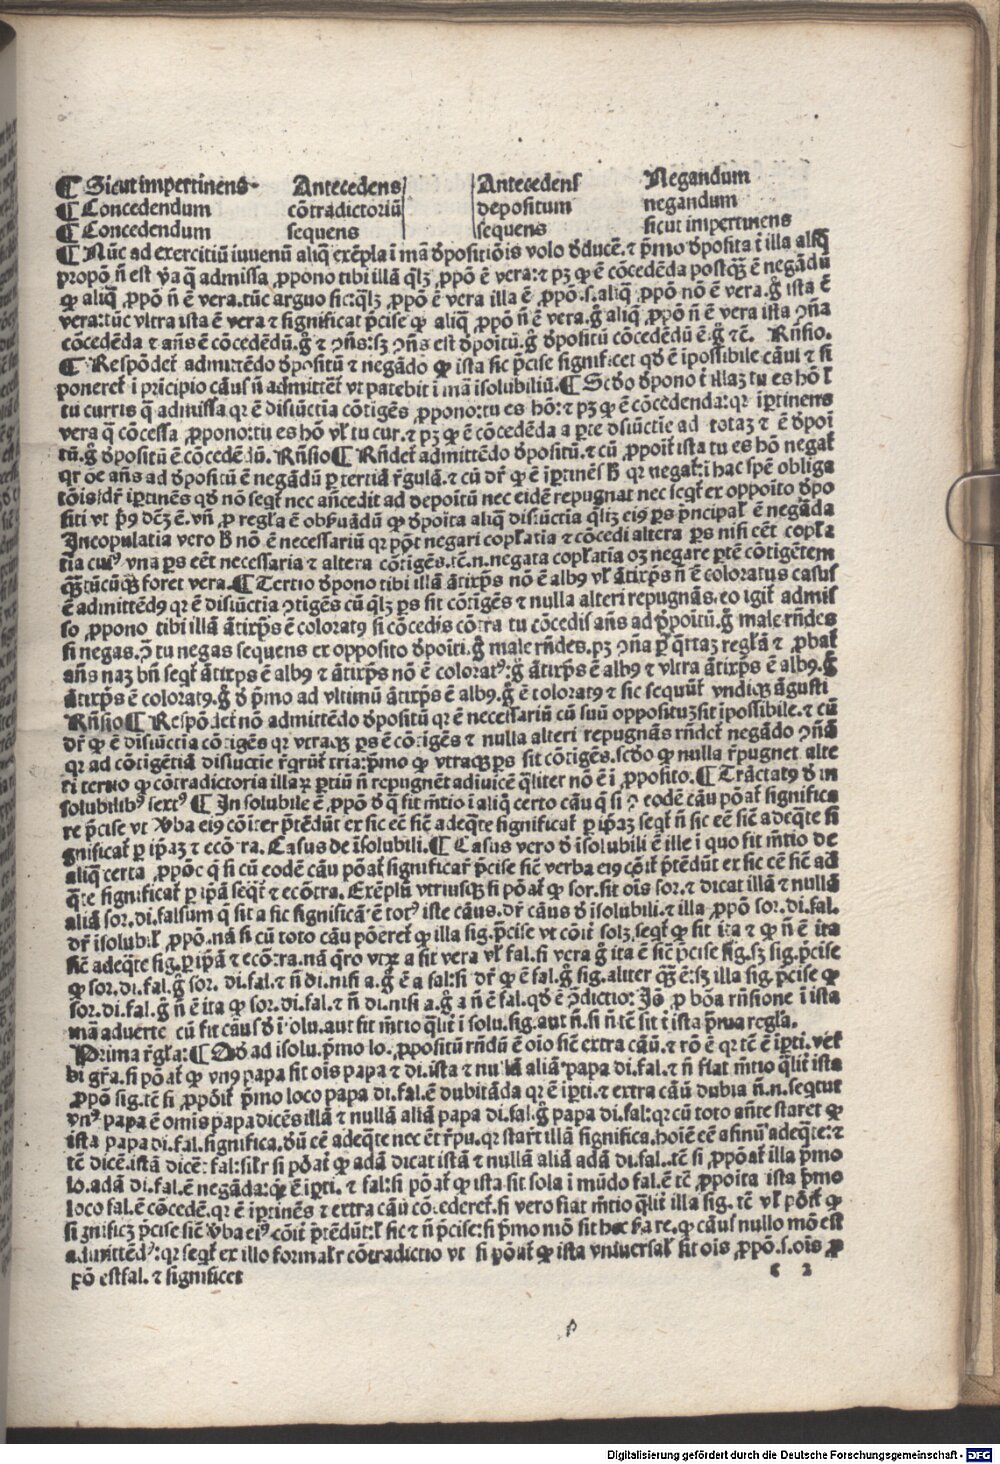 ¶ Sicut impertinens. Antecedens Antecedens Negandum
¶ Concedendum cõtradictoriũ depositum negandum
¶ Concedendum sequens sequens sicut impertinens
¶ Nũc ad exercitiũ iuvenũ aliq̃ exẽpla ĩ mã ꝺpositiõis volo ꝺducẽ. ⁊ p̃mo ꝺposita ť illa aliq̃
propõ ñ est ꝟa q̃ admissa ꝓpono tibi illã q̃lꝫ ꝓpõ ẽ vera: ⁊ pꝫ ꝙ ẽ cõcedẽda postq̃ꝫ ẽ negãdũ
ꝙ aliq̃ ꝓpõ ñ ẽ vera. tũc arguo sic: q̃lꝫ ꝓpõ ẽ vera illa ẽ ꝓpõ .s. aliq̃ ꝓpõ nõ ẽ vera. g̃ ista ẽ
vera: tũc vltra ista ẽ vera ⁊ significat p̃cise ꝙ aliq̃ ꝓpõ ñ ẽ vera. g̃ aliq̃ ꝓpõ ñ ẽ vera ista ꝯña
cõcedẽda ⁊ añs ẽ cõcedẽdũ. g̃ ⁊ ꝯñs: sꝫ ꝯñs est ꝺpoĩtũ. g̃ ꝺpositũ cõcedẽdũ ẽ. g̃ ⁊c̃. Rñsio.
¶ Respõdet̃ admittẽdo ꝺpositũ ⁊ negãdo ꝙ ista sic p̃cise significet qꝺ ẽ ĩpossibile cãui ⁊ si
poneret̃ ĩ pricipio cãus ñ admittet̃ vt patebit ĩ mã ĩsolubiliũ. ¶ Scꝺo ꝺpono ť illaꝫ tu es hõ ł
tu curris q̃ admissa. qr ẽ disiũctia cõtigẽs ꝓpono: tu es hõ: ⁊ pꝫ ꝙ ẽ cõcedenda: qr ĩꝑtinens
vera q̃ cõcessa ꝓpono: tu es hõ vł tu cur. ⁊ pꝫ ꝙ ẽ cõcedẽda a ꝑte disiũctie ad totaꝫ ⁊ ẽ ꝺpoĩ
tũ. g̃ ꝺpositũ ẽ cõcedẽdũ. Rñsio ¶ Rñdet̃ admittẽdo ꝺpositũ. ⁊ cũ ꝓpoĩt̃ ista tu es hõ negat̃
qr oẽ añs ad ꝺpositũ ẽ negãdũ ꝑ tertiã r̃gulã. ⁊ cũ dr̃ ꝙ ẽ ĩꝑtinẽs ħ qr negat̃: ĩ hac spẽ obliga
tõis: dr̃ ĩꝑtinẽs qꝺ nõ seqt̃ nec añcedit ad depoĩtũ nec eidẽ repugnat nec seqt̃ ex oppoĩto ꝺpo
siti vt p̃ꝰ dc̃ꝫ ẽ. vñ ꝓ regła ẽ obsuãdũ ꝙ ꝺpoĩta aliq̃ disiũctia q̃liꝫ eiꝰ ꝑs p̃ncipał ẽ negãda
In copulatia vero ħ nõ ẽ necessariũ qr põt negari copłatia ⁊ cõcedi altera ꝑs nisi cẽt copła
tia cuiꝰ vna ꝑs eẽt necessaria ⁊ altera cõtigẽs. tc̃. n. negata copłatia oꝫ negare ꝑtẽ cõtigẽtem
q̃ꝫtũcũqꝫ foret vera. ¶ Tertio ꝺpono tibi illã ãtixp̃s nõ ẽ albꝰ vł ãtixp̃s ñ ẽ coloratus casus
ẽ admittẽdꝰ qr ẽ disiũctia ꝯtigẽs cũ q̃lꝫ ꝑs sit cõtigẽs ⁊ nulla alteri repugnãs. eo igit̃ admis
so ꝓpono tibi illã ãtixp̃s ẽ coloratꝰ si cõcedis cõtra tu cõcedis añs ad ꝺpoĩtũ. g̃ male rñdes
si negas. ꝯ̃ tu negas sequens ex opposito ꝺpoĩti. g̃ male rñdes. pꝫ ꝯña ꝑ q̃rtaꝫ regłã ⁊ ꝓbat̃
añs naꝫ bñ seqt̃ ãtixp̃s ẽ albꝰ ⁊ ãtixp̃s nõ ẽ coloratꝰ: g̃ ãtixp̃s ẽ albꝰ ⁊ vltra ãtixp̃s ẽ albꝰ. g̃
ãtixp̃s ẽ coloratꝰ. g̃ ꝺ p̃mo ad vltimũ ãtixp̃s ẽ albꝰ. g̃ ẽ coloratꝰ ⁊ sic sequũt̃ vndiqꝫ ãgusti
Rñsio ¶ Respõdet̃ nõ admittẽdo ꝺpositũ qr ẽ necessariũ cũ suũ oppositũ sit ĩpossibile. ⁊ cũ
dr̃ ꝙ ẽ disiũctia cõtigẽs qr vtraqꝫ ꝑs ẽ cõtigẽs ⁊ nulla alteri repugnãs rñdet̃ negãdo ꝯñã
qr ad cõtigẽtiã disiuctie r̃qrũt̃ tria: p̃mo ꝙ vtraqꝫ ꝑs sit cõtigẽs. scꝺo ꝙ nulla r̃pugnet alte
ri tertio ꝙ cõtradictoria illaꝝ ꝑtiũ ñ repugnẽt adiuicẽ q̃liter nõ ẽ ĩ ꝓposito. ¶ Tractatꝰ ꝺ in
solubilibꝰ sextꝰ ¶ In solubile ẽ ꝓpõ ꝺ q̃ sit m̃tio ĩ aliq̃ certo cãu q̃ si ꝯ eodẽ cãu põat̃ significa
re p̃cise vt ꝟba eiꝰ cõiter p̃tẽdũt ex sic eẽ siẽ adeq̃te significat̃ ꝑ ip̃aꝫ seqt̃ ñ sic eẽ siẽ adeq̃te si
gnificat̃ ꝑ ip̃aꝫ ⁊ ecõtra. Casus de ĩsolubili. ¶ Casus vero ꝺ ĩsolubili ẽ ille ĩ quo fit m̃tio de
aliq̃ certa ꝓpõe q̃ si cũ eodẽ cãu põat̃ significar̃ p̃cise siẽ verba eiꝰ cõit̃ p̃tẽdũt ex sic eẽ siẽ ad
q̃te significat̃ ꝑ ip̃ã seqt̃ ⁊ ecõtra. Exẽplũ vtriusqꝫ si põat̃ ꝙ sor. sit oĩs sor. ⁊ dicat illã ⁊ nullã
aliã sor. di. falsum q̃ sit a sic significãs ẽ totꝰ iste cãus. dr̃ cãus ꝺ ĩsolubili. ⁊ illa ꝓpõ sor. di. fal.
dr̃ ĩsolubił ꝓpõ. nã si cũ toto cãu põeret̃ ꝙ illa sig. p̃cise vt cõit̃ solꝫ. seqt̃ ꝙ sit ita ⁊ ꝙ ñ ẽ ita
siẽ adeq̃te sig. ꝑ ip̃ã ⁊ ecõtra. nã q̃ro vtꝝ a sit vera vł fal. si vera g̃ ita ẽ siẽ p̃cise sig. sꝫ sig. p̃cise
ꝙ sor. di. fal. g̃ sor. di. fal. ⁊ ñ di. nisi a. g̃ ẽ a fal: si dr̃ ꝙ ẽ fal. g̃ sig. aliter q̃ꝫ ẽ: sꝫ illa sig. p̃cise ꝙ
sor. di. fal. g̃ ñ ẽ ita ꝙ sor. di. fal. ⁊ ñ di. nisi a. g̃ a ñ ẽ fal. qꝺ ẽ ꝯdictio: Iõ ꝓ bõa rñsione ĩ ista
mã aduerte cũ fit cãus ꝺ ĩsolu. aut fit m̃tio q̃lit̃ ĩ solu. sig. aut ñ. si ñ tẽ sit ť ista p̃ma regła.
Prima r̃gła: ¶ Aꝺ ad isolu. p̃mo lo. ꝓpositũ rñdũ ẽ oĩo siẽ extra cãũ. ⁊ rõ ẽ qr tẽ ẽ ĩpti. vel
bi gr̃a. si põat̃ ꝙ vnꝰ papa sit oĩs papa ⁊ di. ista ⁊ nullã aliã papa di. fal. ⁊ ñ fiat m̃tio q̃lit̃ ista
ꝓpõ sig. tẽ si ꝓpõit̃ p̃mo loco papa di. fal. ẽ dubitãda qr ẽ ĩpti. ⁊ extra cãũ dubia ñ. n. seqtur
vnꝰ papa ẽ omis papa dicẽs illã ⁊ nullã aliã papa di. fal. g̃ papa di. fal: qr cũ toto añte staret ꝙ
ista papa di. fal. significa. ꝺũ eẽ adeq̃te nec ẽt r̃pu. qr staret illã significa. hoĩem eẽ asinũ adeq̃te: ⁊
tẽ dicẽ. istã dicẽ: fal: silr̃ si põat̃ ꝙ adã dicat istã ⁊ nullã aliã adã di. fal. tẽ si ꝓpõat̃ illa p̃mo
lo. adã di. fal. ẽ negãda: qr̃ ẽ ĩpti. ⁊ fal: si põat̃ ꝙ ista sit sola ĩ mũdo fal. ẽ tẽ ꝓpoita ista p̃mo
loco fal. ẽ cõcedẽ. qr ẽ ĩꝑtinẽs ⁊ extra cãu cõcederet̃. si vero fiat m̃tio q̃lit̃ illa sig. tẽ vł põit̃ ꝙ
si gnificꝫ p̃cise siẽ ꝟba eiꝰ cõit̃ p̃tẽdũt: ł sic ⁊ ñ p̃cise: si p̃mo mõ sit hec sa re. ꝙ cãus nullo mõ est
admittẽdꝰ: qr seqt̃ ex illo formałr cõtradictio vt si põat̃ ꝙ ista vniuersał sit oĩs ꝓpõ .s. oĩs ꝓ
põ est fal. ⁊ significet
c 2
Digitalisierung gefördert durch die Deutsche Forschungsgemeinschaft - DFG